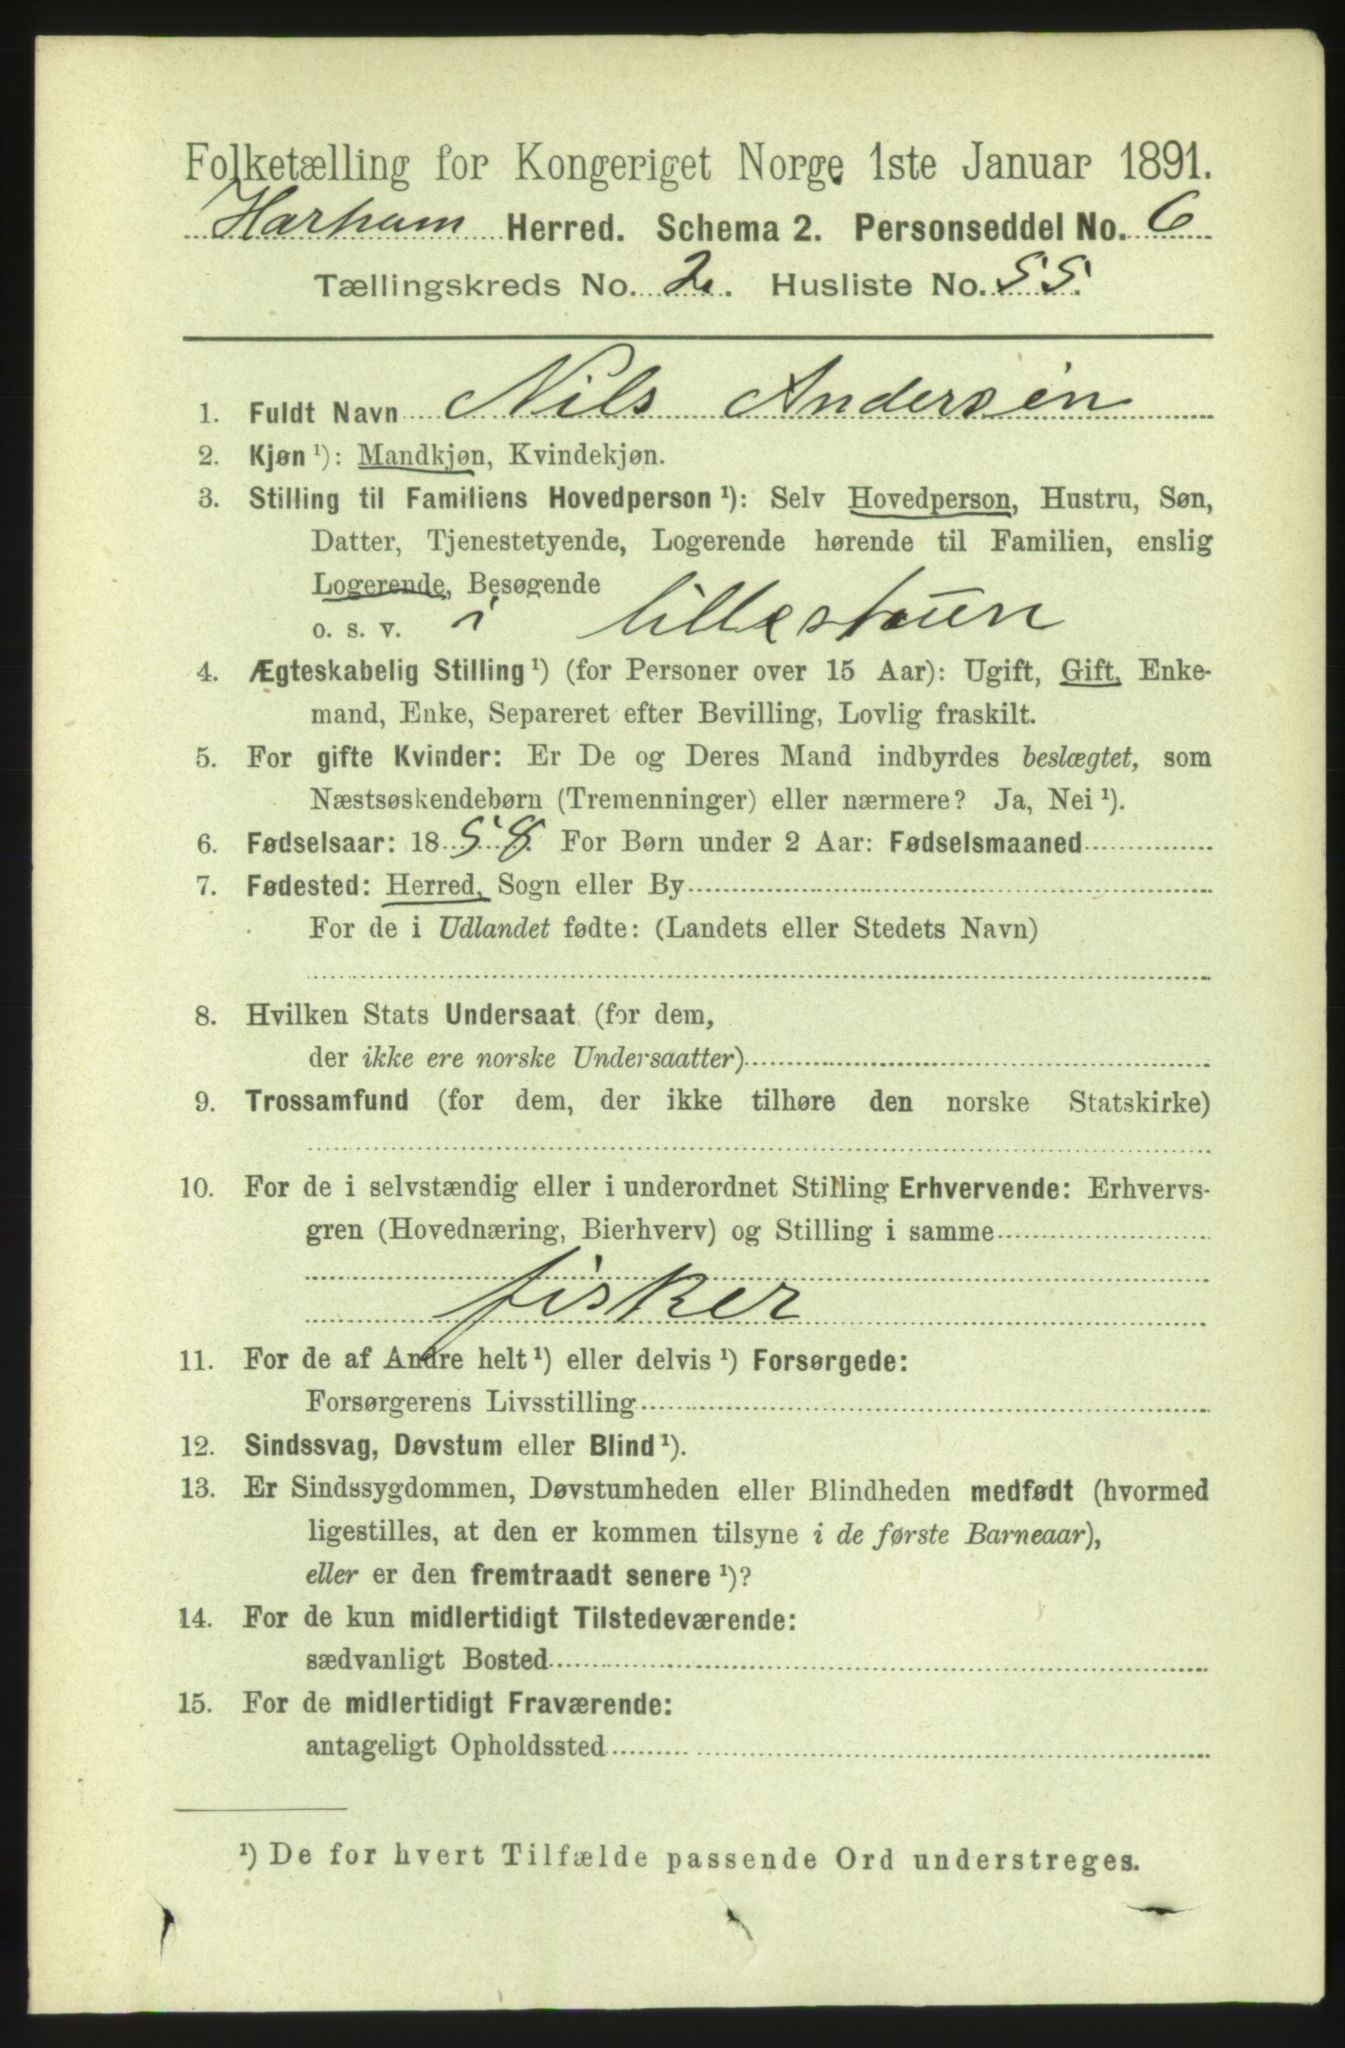 Folketælling for Kongeriget Norge 1ste Januar 1891.
Harham Herred. Schema 2. Personseddel No. 6
Tællingskreds No. 2. Husliste No. 55.
1. Fuldt Navn Nils Andersen
2. Kjøn ¹): Mandkjøn, Kvindekjøn.
3. Stilling til Familiens Hovedperson ¹): Selv Hovedperson, Hustru, Søn,
Datter, Tjenestetyende, Logerende hørende til Familien, enslig
Logerende, Besøgende
o. s. v. i lillestuen
4. Ægteskabelig Stilling ¹) (for Personer over 15 Aar): Ugift, Gift, Enke-
mand, Enke, Separeret efter Bevilling, Lovlig fraskilt.
5. For gifte Kvinder: Er De og Deres Mand indbyrdes beslægtet, som
Næstsøskendebørn (Tremenninger) eller nærmere? Ja, Nei ¹).
6. Fødselsaar: 1858. For Børn under 2 Aar: Fødselsmaaned
7. Fødested: Herred, Sogn eller By
For de i Udlandet fødte: (Landets eller Stedets Navn)
8. Hvilken Stats Undersaat (for dem,
der ikke ere norske Undersaatter)
9. Trossamfund (for dem, der ikke tilhøre den norske Statskirke)
10. For de i selvstændig eller i underordnet Stilling Erhvervende: Erhvervs-
gren (Hovednæring, Bierhverv) og Stilling i samme
fisker
11. For de af Andre helt ¹) eller delvis ¹) Forsørgede:
Forsørgerens Livsstilling
12. Sindssvag, Døvstum eller Blind ¹).
13. Er Sindssygdommen, Døvstumheden eller Blindheden medfødt (hvormed
ligestilles, at den er kommen tilsyne i de første Barneaar),
eller er den fremtraadt senere ¹)?
14. For de kun midlertidigt Tilstedeværende:
sædvanligt Bosted
15. For de midlertidigt Fraværende:
antageligt Opholdssted
¹) De for hvert Tilfælde passende Ord understreges.